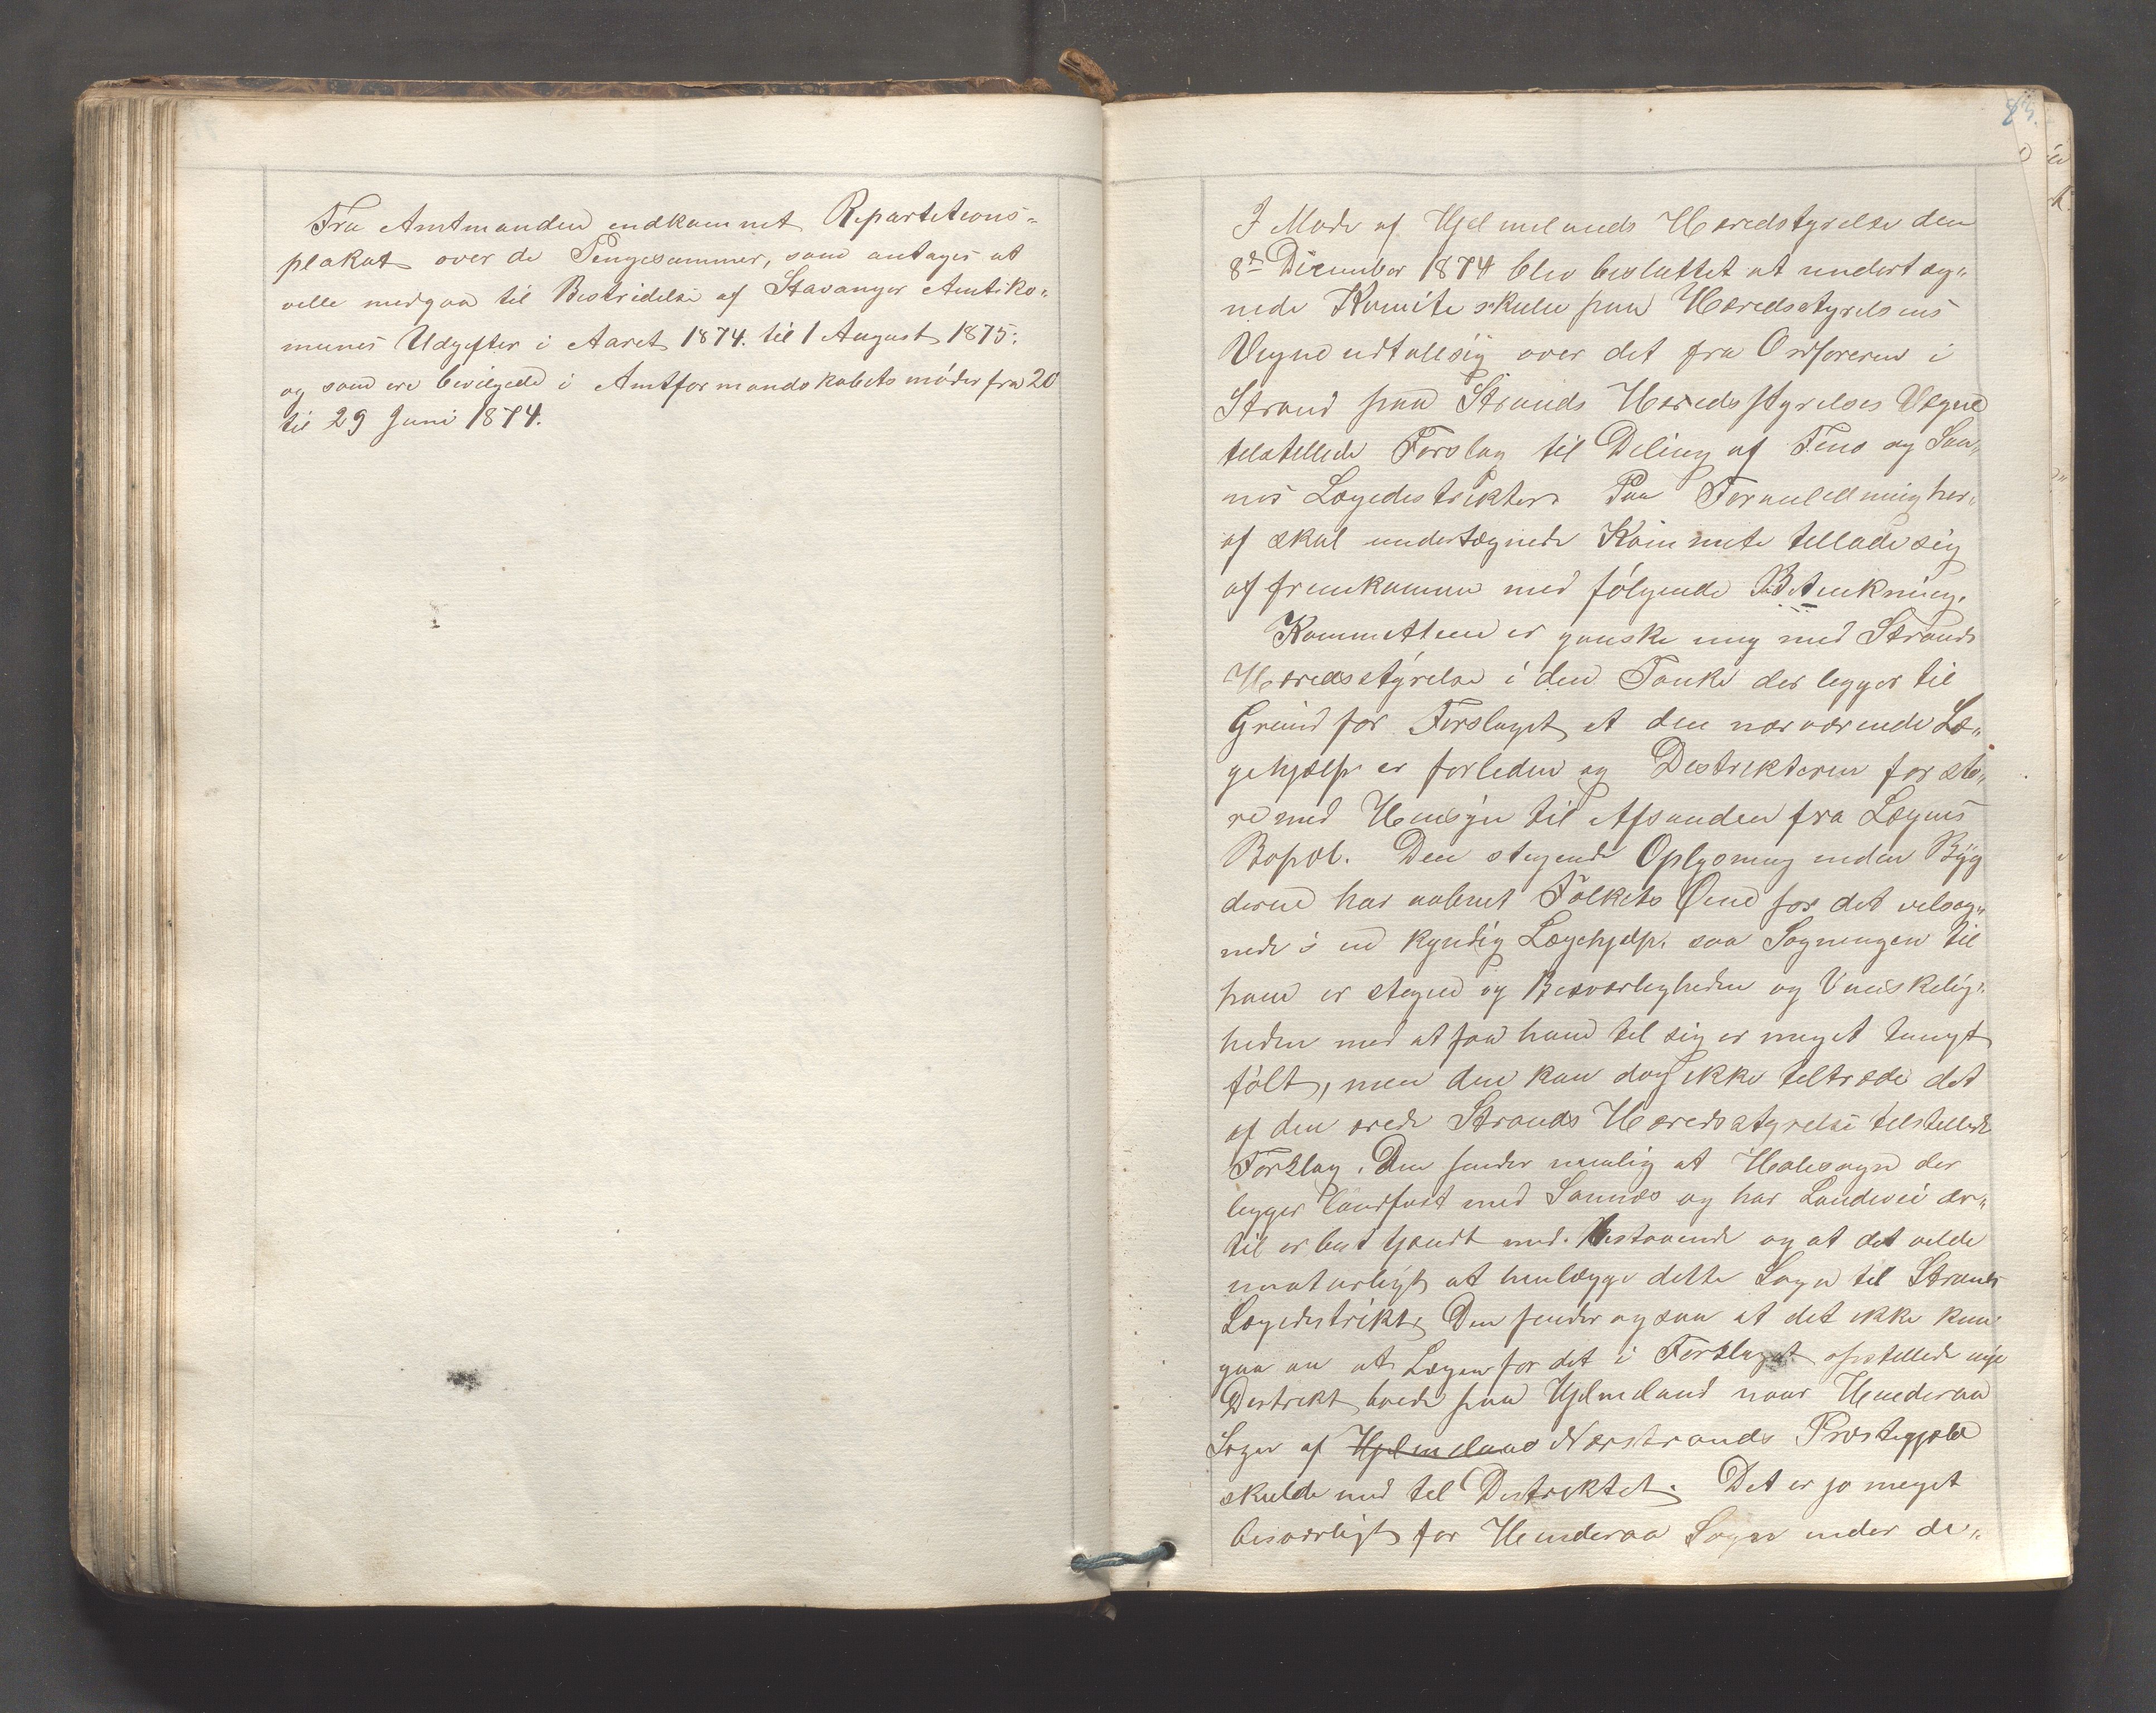 Fra Amtmanden indkommet Repartitions-
plakat over de Pengesummer, som antages at
ville medgaa til Bestridelse af Stavanger Amtsko-
munes Udgifter i Aaret 1874. til 1 August 1875.
og som ere bevilgede i Amtformandskabets möder fra 20
til 29 Juni 1874.
83.
I Møde af Hjelmelands Heredstyrelse den
8de December 1874 blev besluttet at undertæg-
nede Komite skulde paa Heredsstyrelsens
Vegne udtale sig over det fra Ordføreren i
Strand paa Strands Heredsstyrelses Vegne
tilstillede Forslag til Deling af Finø og San-
nes Lægedistrikter. Paa Foranledning her-
af skal undertægnede Kommite tillade sig
at fremkomme med fölgende Betænkning.
Kommitteen er ganske enig med Strands
Heredsstyrelse i den Tanke der legger til
Grund for Forslaget, at den nærværende Læ-
gehjælp er forliden og Distrikterne for sto-
re med Hensyn til Afstanden fra Lægens
Bopæl. Den stegende Oplysning inden Byg
derne har aabnet Folkets Øine for det velsig-
nede i en kyndig Lægehjelp. saa Sögningen til
ham er stegen og Besværligheden og Vanskelig-
heden med at faa ham til sig er meget tungt
fölt, men den kan dog ikke tiltræde det
af den ærede Strands Heredsstyrelse tilstillede
Forslag. Den finder nemlig at Holesogn der
legger landfast med Sannes og har Landevei der-
til er best tjendt med Bestaaende og at det vilde
unaturligt at henlægge dette Sogn til Strands
Lægedistrikt. Den finder ogsaa at det ikke kan
gaa an at Lægen for det i Forslaget opstillede nye
Distrikt boede paa Hjelmeland naar Hinderaa
Sogn af Hjelmeland Nerstrands Præstegjæld
skulde med til Distriktet. Det er jo meget
besværligt for Hinderaa Sogn under de-